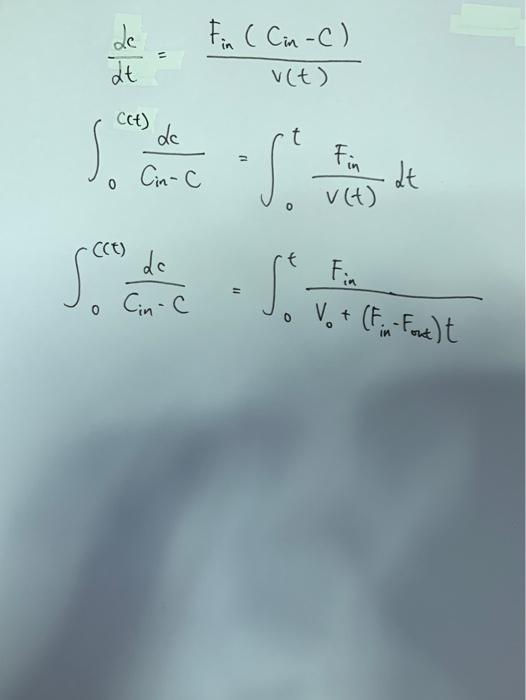 dc/dt = F_in (C_in - C) / V(t)
∫_0^C(t) dc/(C_in - C) = ∫_0^t F_in/V(t) dt
∫_0^C(t) dc/(C_in - C) = ∫_0^t F_in/(V_0 + (F_in - F_out)t)